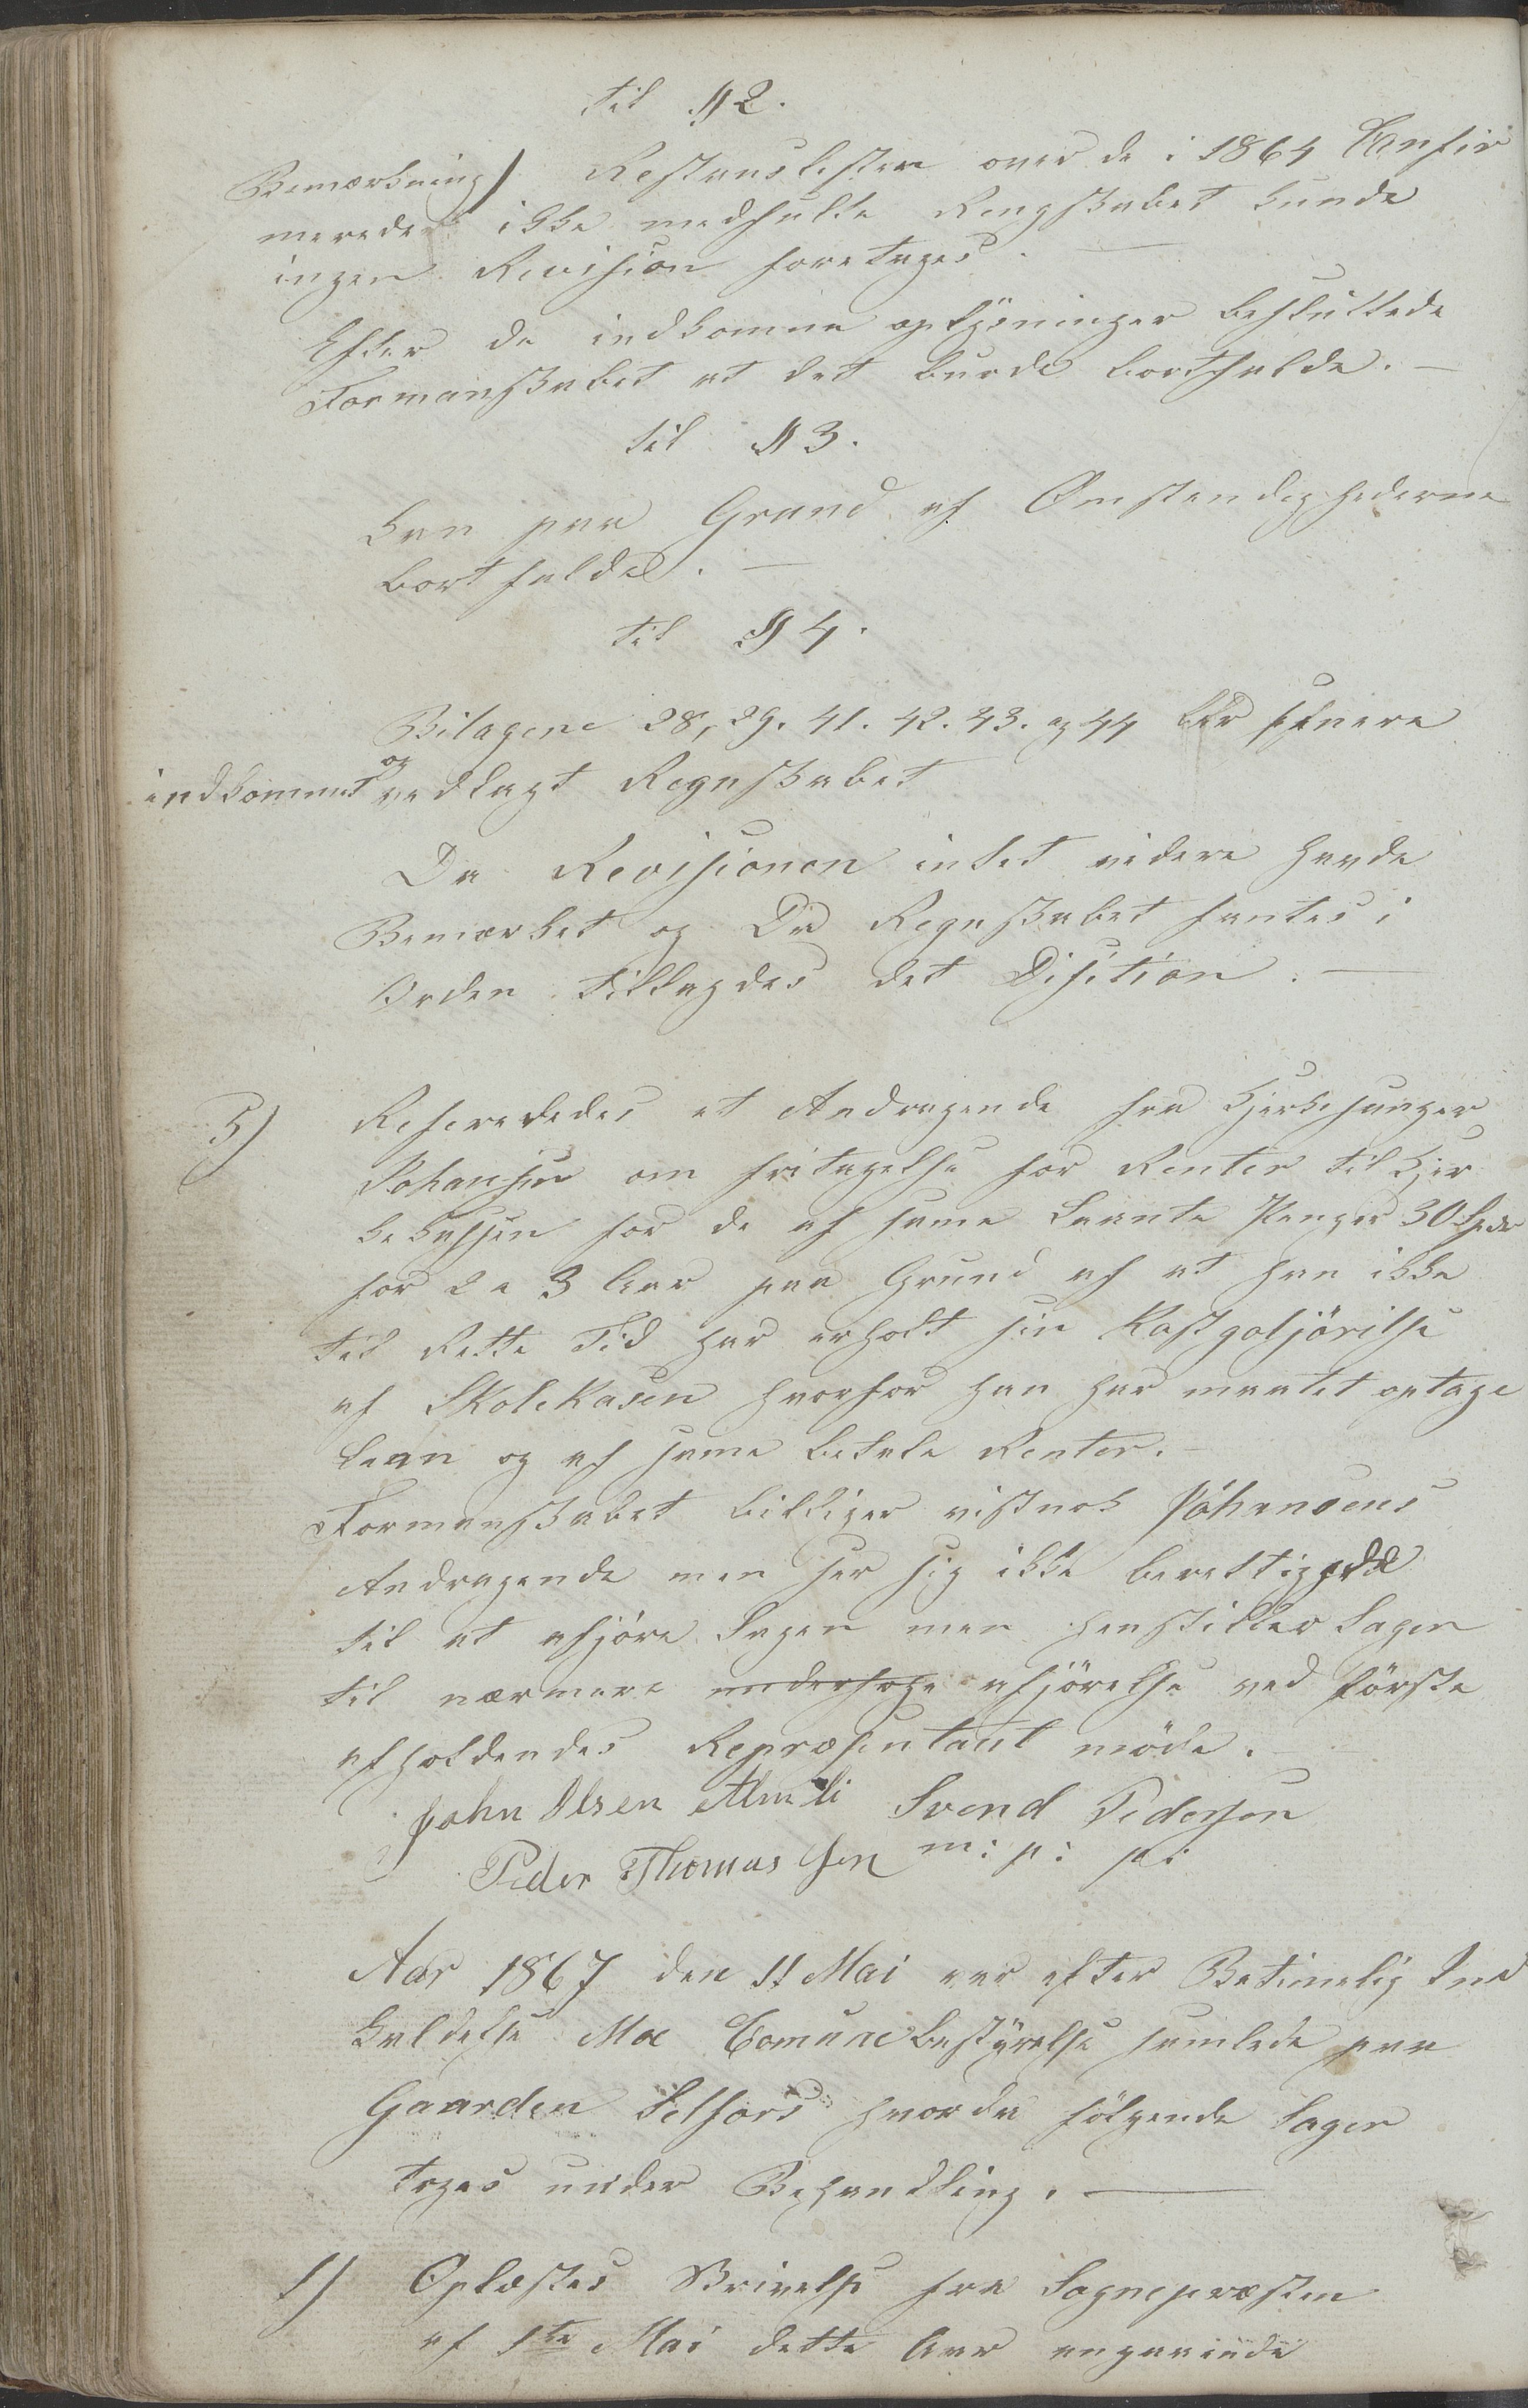 til § 2.
Bemærkning) Restanslisten over de i 1864 Confir
merede ikke medfulte Rengskabet kunde
ingen Revision foretages. —
Efter de indkomne oplysninger besluttede
Formanskabet at det burde bortfalde. —
til § 3.
kan paa Grund af Omstendighederne
bortfalde. —
til § 4.
Bilagene 28, 29. 41. 42. 43. og 44 er senere
indkommet og vedlagt Regnskabet
Da Revisionen intet videre havde
Bemærket og Da Regnskabet fantes i
Orden tillagdes det Disition. —
5) Refereredes et Andragende fra Kjerkesanger
Johansen om fritagelse for Renter til Kjer
kekassen for de af samme laante Penger 30 Spdr
for 2 a 3 Aar paa Grund af at han ikke
til Rette Tid har erholt sin Kostgotjörilse
af Skolekasen hvorfor han har maatet optage
laan og af samme betale Renter. —
Formanskabet billiger vistnok Johansens
Andragende men ser sig ikke berettigede
til at afjöre Sagen men henstiller Sagen
til nærmere undersøge afjörelse ved förste
afholdendes Repræsentant möde. —
John Olsen Almli Svend Pedersen
Peder Thomassen m: p: p:
Aar 1867 den 11 Mai var efter Betimelig Ind
kaldelse Mo Comunebestyrelse samlede paa
Gaarden Selfors hvorda fölgende Sager
toges under Behandling. —
1) Oplæstes Skrivelse fra Sognepræsten
af 1te Mai dette Aar angaaende